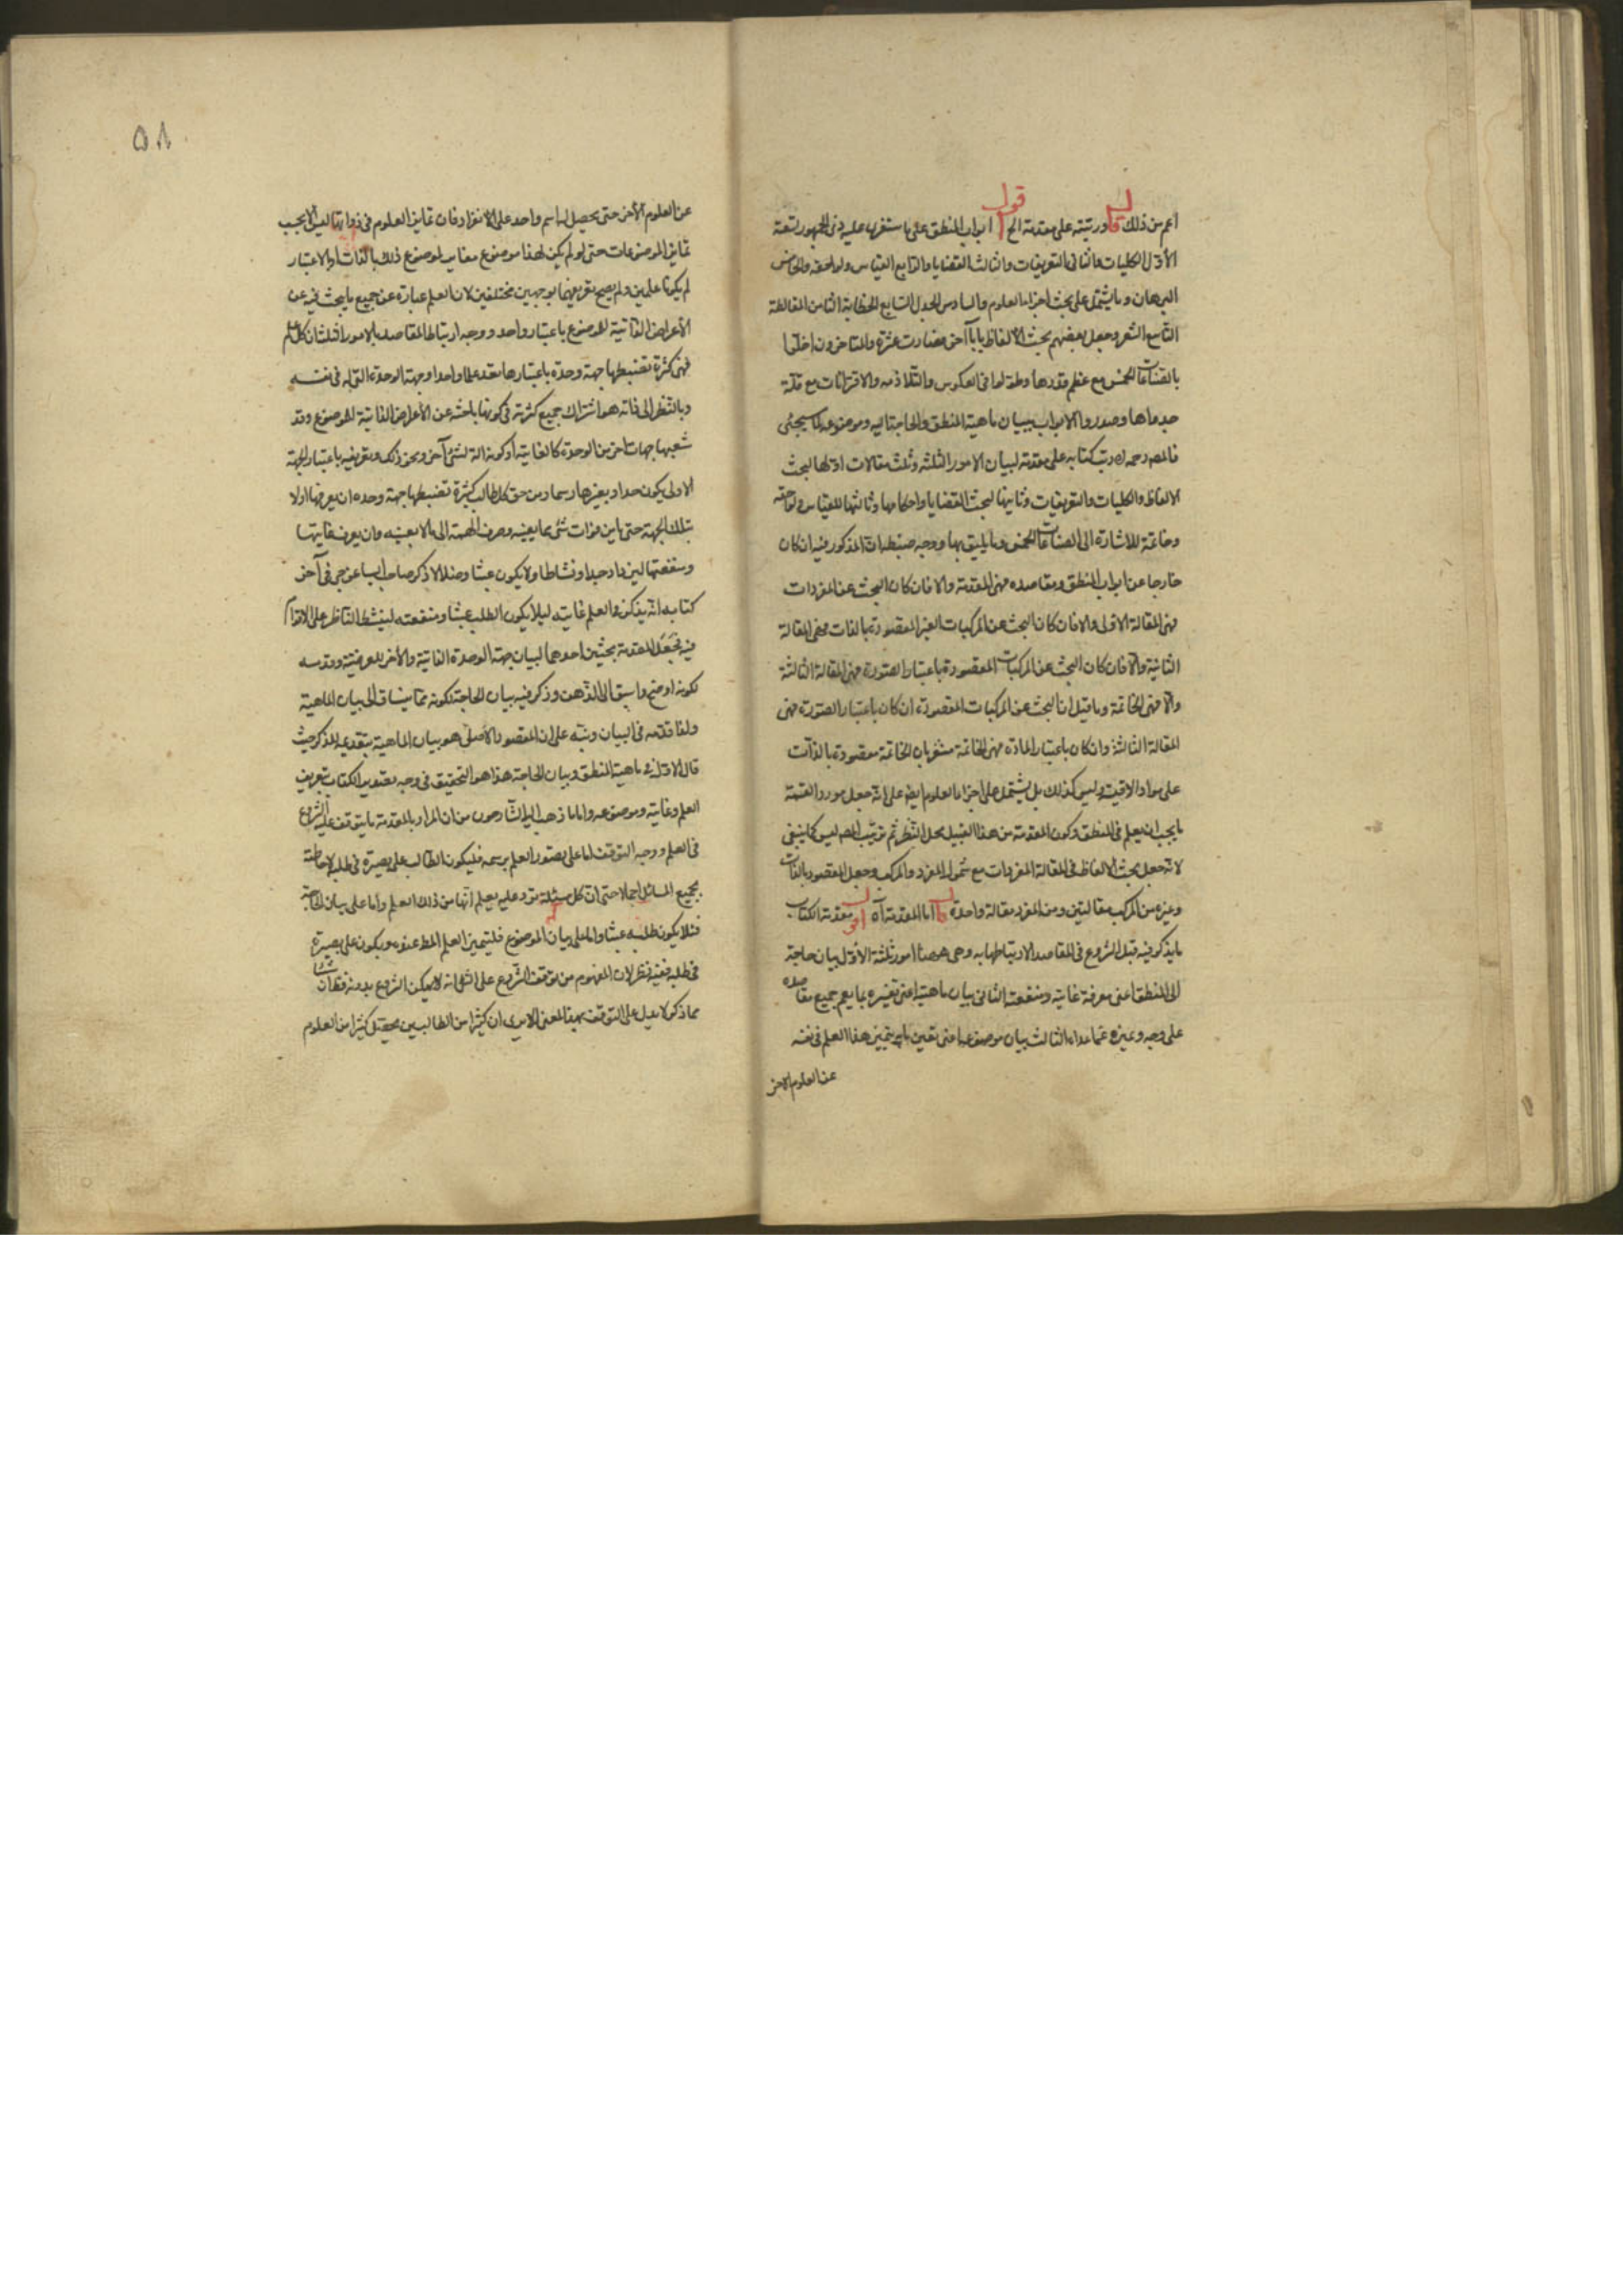 اعم من ذلك قال ورتبته على مقدمة الخ اقول ابواب المنطق على ما استقر عليه رأى الجمهور تسعة
الأول الكليات والثانى التعريفات والثالث القضايا والرابع القياس ولواحقه والخامس
البرهان وما يشتمل على بحث اجزاء العلوم والسادس الجدل السابع الخطابة الثامن المغالطة
التاسع الشعر وجعل بعضهم بحث الالفاظ بابا آخر فصارت عشرة والمتاخرون اخلوا
بالصناعات الخمس مع عظم قدرها وطولوا فى العكوس والتلازم والاقترانات مع قلة
جدواها وصدروا الابواب ببيان ماهية المنطق والحاجة اليه وموضوعه كما سيجئ
فالمصنف رحمه الله رتب كتابه على مقدمة لبيان الامور الثلثة وثلث مقالات اولها لبحث
الالفاظ والكليات والتعريفات وثانيها لبحث القضايا واحكامها وثالثها للقياس ولواحقه
وخاتمة للاشارة الى الصناعات الخمس وما يليق بها ووجه ضبطه ان المذكور فيه ان كان
خارجا عن ابواب المنطق ومقاصده فهى المقدمة والا فان كان البحث عن المفردات
فهى المقالة الاولى والا فان كان البحث عن المركبات الغير المقصودة بالذات فهى المقالة
الثانية والا فان كان البحث عن المركبات المقصودة باعتبار الصورة فهى المقالة الثالثة
والا فهى الخاتمة وما قيل ان البحث عن المركبات المقصودة ان كان باعتبار الصورة فهى
المقالة الثالثة وان كان باعتبار المادة فهى الخاتمة مشعر بان الخاتمة مقصودة بالذات
على مواد الاقيسة وليس كذلك بل يشتمل على اجزاء العلوم ايضا على انه جعل مورد القسمة
ما يجب ان يعلم فى المنطق وكون المقدمة من هذا القبيل محل النظر ثم ترتيب المصنف ليس كما ينبغى
لانه جعل بحث الالفاظ فى المقالة المفردات مع شمول المفرد والمركب وجعل المقصود بالذات
وغيره من المركب مقالتين ومن المفرد مقالة واحدة قال اما المقدمة آه اقول مقدمة الكتاب
ما يذكر فيه قبل الشروع فى المقاصد لارتباطها به وهى ههنا امور ثلثة الأول بيان حاجة
الى المنطق اعنى معرفة غايته ومنفعته الثانى بيان ماهيته اعنى تفسيره بما يعم جميع مقاصده
على وجه وغيره عما عداه الثالث بيان موضوعه اعنى تعيين ما به يتميز هذا العلم فى نفسه
عن العلوم الاخر
٥٨
عن العلوم الأخر حتى يحصل له اسم واحد على الانفراد فان تمايز العلوم فى ذواتها ليس الا بحسب
تمايز الموضوعات حتى لو لم يكن لهذا موضوع مغاير لموضوع ذلك بالذات او بالاعتبار
لم يكونا علمين ولم يصح تعريفهما بوجهين مختلفين لان العلم عبارة عن جميع ما يبحث فيه عن
الأعراض الذاتية لموضوع باعتبار واحد ووجه ارتباط المقاصد بالامور الثلثة ان كل علم
فهى كثرة تضبطها جهة وحدة باعتبارها تعد علما واحدا وجهة الوحدة التى له فى نفسه
وبالنظر الى ذاته هو اشتراك جميع كثرته فى كونها باحثة عن الأعراض الذاتية لموضوع وقد
شعبها جهات اخر من الوحدة كالغاية او كونه آلة لشئ آخر ونحو ذلك وتعريفه باعتبار الجهة
الاولى يكون حدا وبغيرها رسما ومن حق كل طالب كثرة تضبطها جهة وحدة ان يعرفها اولا
بتلك الجهة حتى يامن فوات شئ مما يعينه وصرف الهمة الى ما لا يعينه وان يعرف غايتها
ومنفعتها ليزداد جدا ونشاطا ولا يكون عبثا وضلالا ذكر صاحب ايساغوجى فى آخر
كتابه انه يذكر فى العلم غايته ليلا يكون الطلب عبثا ومنفعته لينشط الناظر على الاقدام
فيه فجعل المقدمة بحثين احدهما لبيان جهة الوحدة الذاتية والأخر للعرضية وقدمه
لكونه اوضح واسبق الى الذهن وذكر فيه بيان الحاجة لكونه مما ينساق الى بيان الماهية
ولذا قدمه فى البيان ونبه على ان المقصود الأصلى هو بيان الماهية بتقديمه للذكر حيث
قال الاول فى ماهية المنطق وبيان الحاجة هذا هو التحقيق فى وجه تصدير الكتاب بتعريف
العلم وغايته وموضوعه واما ما ذهب اليه الشارحون من ان المراد بالمقدمة ما يتوقف عليه الشروع
فى العلم ووجه التوقف اما على تصور العلم برسمه فليكون الطالب على بصيرة فى طلبه لاحاطته
بجميع المسائل اجمالا حتى ان كل مسئلة ترد عليه يعلم انها من ذلك العلم واما على بيان الحاجة
فلئلا يكون طلبه عبثا واما على بيان الموضوع فليتميز العلم المط عنده ويكون على بصيرة
فى طلبه ففيه نظر لان المفهوم من توقف الشروع على الشئ انه لا يمكن الشروع بدونه فظاهر
مما ذكر لا يدل على التوقف بهذا المعنى الا يرى ان كثيرا من الطالبين يحصل كثيرا من العلوم